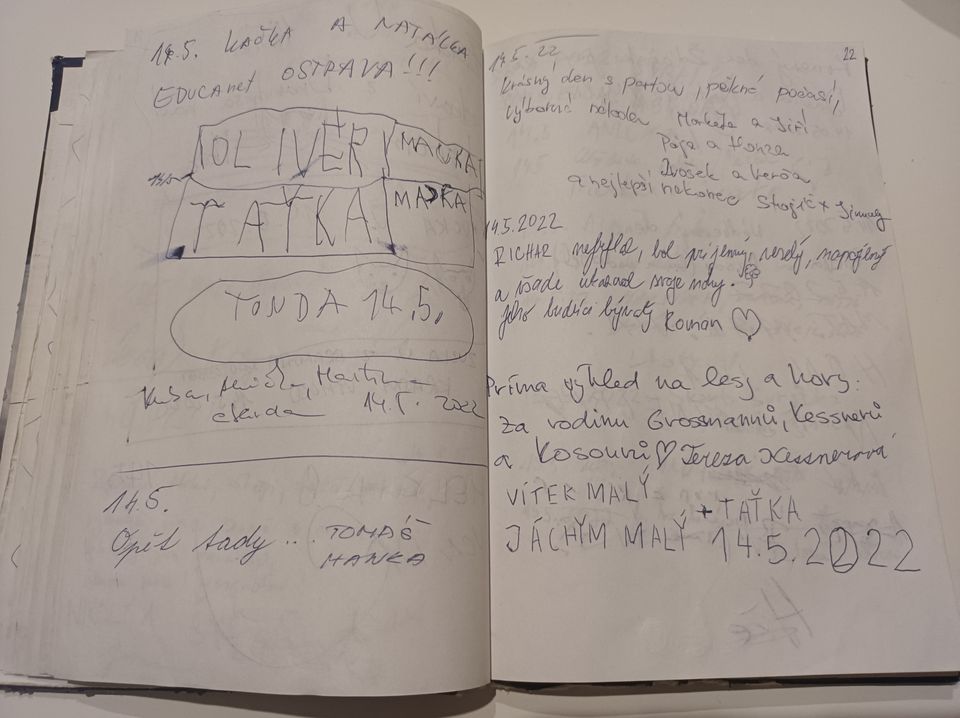 14.5. KAČKA A NATÁLKA
EDUCAnet OSTRAVA!!!
OLIVER MAŤKA
14.5
TAŤKA MAŤKA
TONDA 14.5.
Kuba, Martina
14.5. 2022
14.5.
Opět tady... TOMÁŠ
HANKA
22
14.5.22
Krásný den s partou, pěkné počasí,
výborná nálada Markéta a Jiří
Pája a Honza
a Verča
a nejlepší nakonec Jimmy
14.5.2022
RICHAR nefyflal, bol príjemný, veselý, napojený
a všade ukazoval svoje nohy.
Jeho budúci bývalý Roman ♡
Príma výhled na lesy a hory.
Za rodinu Grossmannů, Kessnerů
a Kosounů ♡ Tereza Kessnerová
VÍTEK MALÝ
+ TAŤKA
JÁCHYM MALÝ 14.5.2022